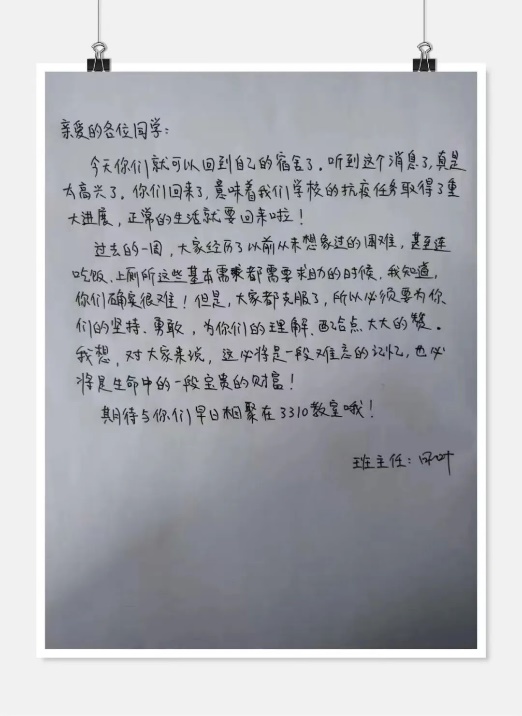 亲爱的各位同学：
今天你们就可以回到自己的宿舍了。听到这个消息了，真是
太高兴了。你们回来了，意味着我们学校的抗疫任务取得了重
大进展，正常的生活就要回来啦！
过去的一周，大家经历了以前从未想象过的困难，甚至连
吃饭、上厕所这些基本需求都需要求助的时候，我知道，
你们确实很难！但是，大家都克服了，所以必须要为你
们的坚持、勇敢，为你们的理解、配合点大大的赞。
我想，对大家来说，这必将是一段难忘的记忆，也必
将是生命中的一段宝贵的财富！
期待与你们早日相聚在3310教室哦！
班主任：叶